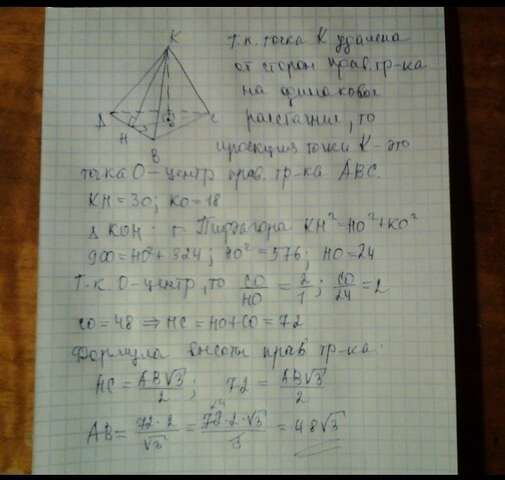 K
Т.к. точка K удалена
от сторон прав. тр-ка
на одинаковое
расстояние, то
проекция точки K - это
A
H
B
O
C
точка O - центр прав. тр-ка ABC.
KH = 30; KO = 18
Δ KOH: т Пифагора KH² = HO² + KO²
900 = HO² + 324; HO² = 576; HO = 24
Т-к O-центр, то CO/HO = 2/1; CO/24 = 2
CO = 48 ⇒ HC = HO + CO = 72
Формула высоты прав тр-ка:
HC = AB√3/2; 72 = AB√3/2
AB = 72·2/√3 = 72·2·√3/3 = 48√3